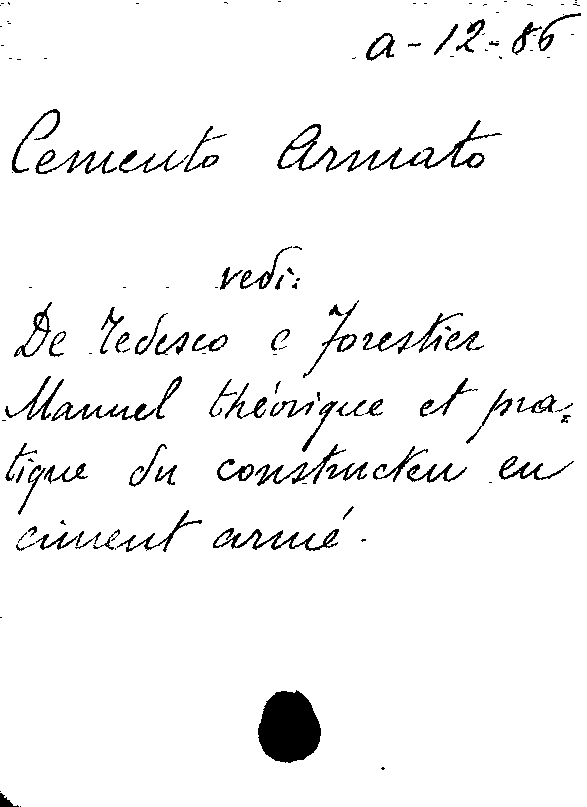 a-12-86
Cemento Armato
vedi:
De Tedesco e Forestier
Manuel théorique et pra=
tique du constructeu en
ciment armé.